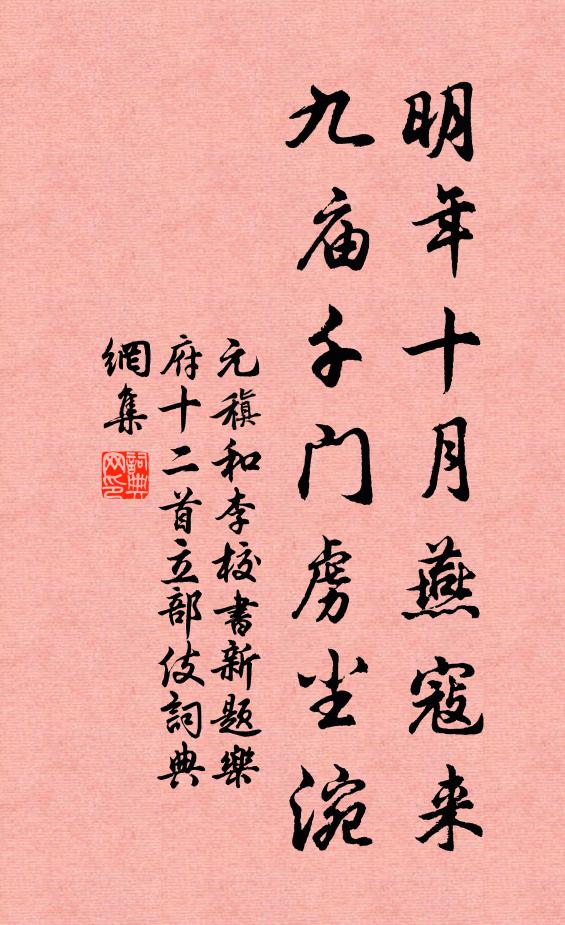 明年十月燕寇来
九庙千门虏尘涴
元稹和李校書新題樂
府十二首立部伎詞典
網集
詞典網印